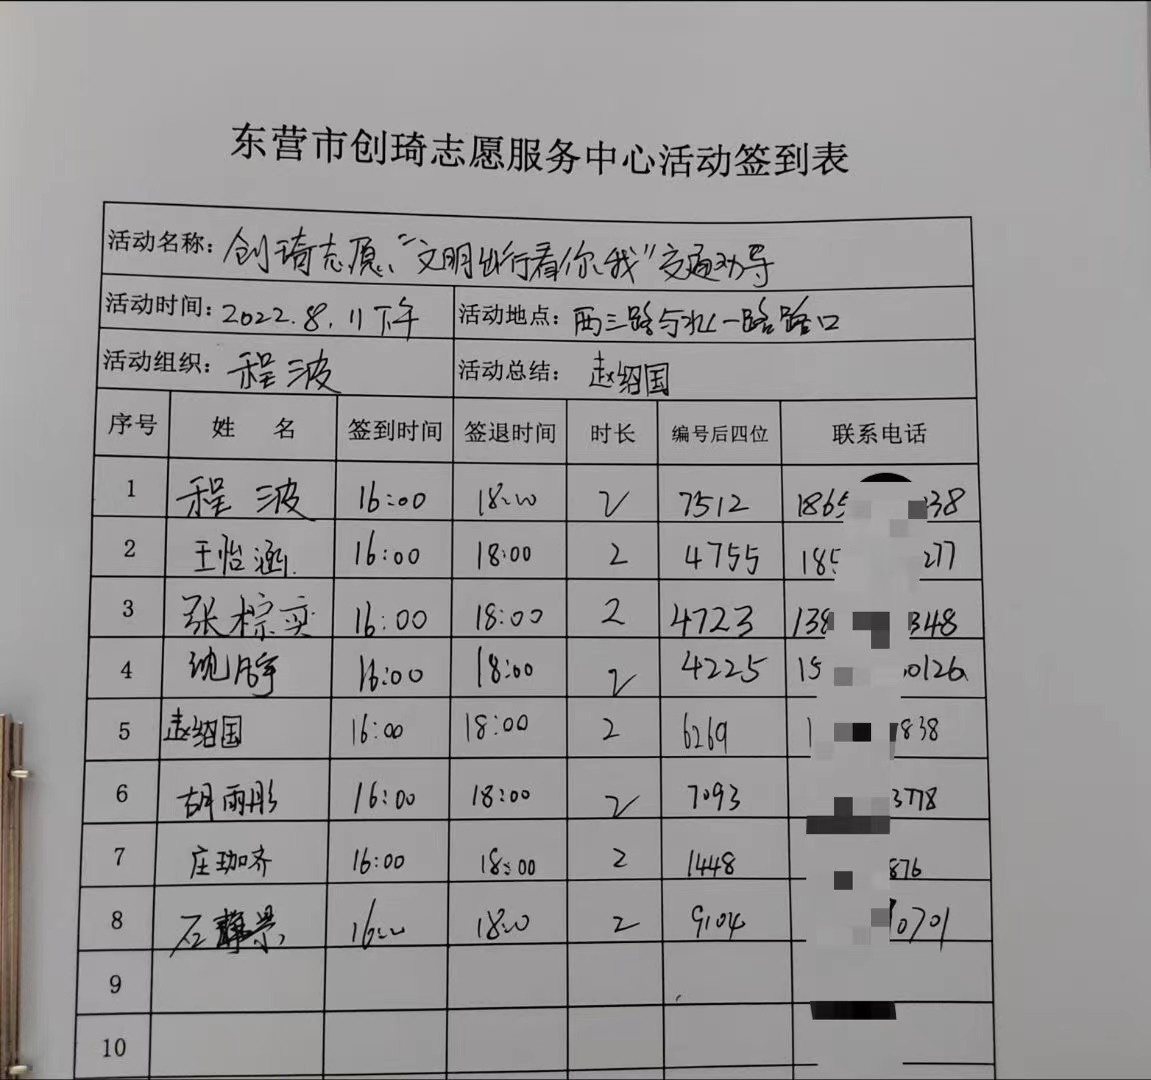 东营市创琦志愿服务中心活动签到表
活动名称: 创琦志愿、“文明出行看你、我”交通劝导
活动时间: 2022.8.11下午 活动地点: 西三路与北一路路口
活动组织: 程波 活动总结: 赵绍国
序号 姓 名 签到时间 签退时间 时长 编号后四位 联系电话
1 程波 16:00 18:00 2 7512 1865 338
2 王怡涵 16:00 18:00 2 4755 185 277
3 张棕奕 16:00 18:00 2 4723 138 348
4 16:00 18:00 2 4225 15 0126
5 赵绍国 16:00 18:00 2 6269 1 838
6 胡雨彤 16:00 18:00 2 7093 3778
7 庄珈齐 16:00 18:00 2 1448 876
8 石 16:00 18:00 2 9104 10701
9
10